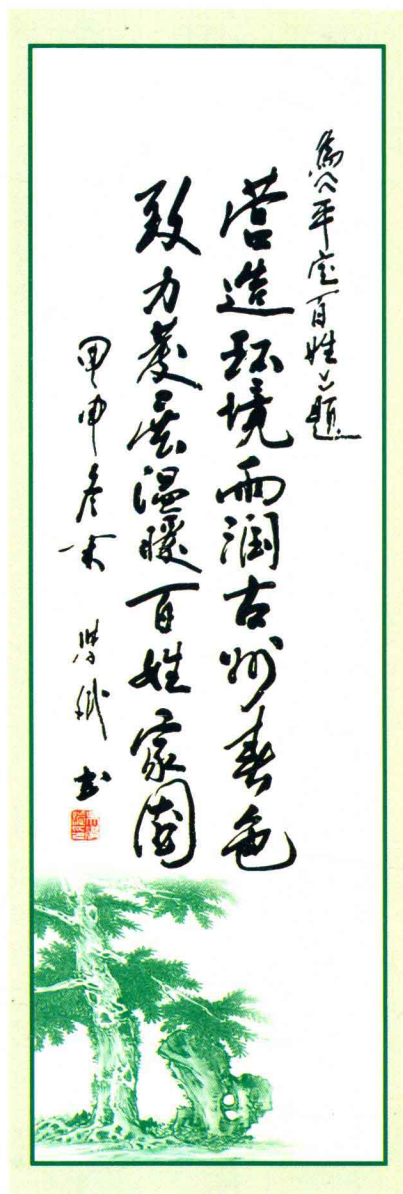 為《平定百姓》題
营造环境雨润古州春色
致力發展温暖百姓家園
甲申 书